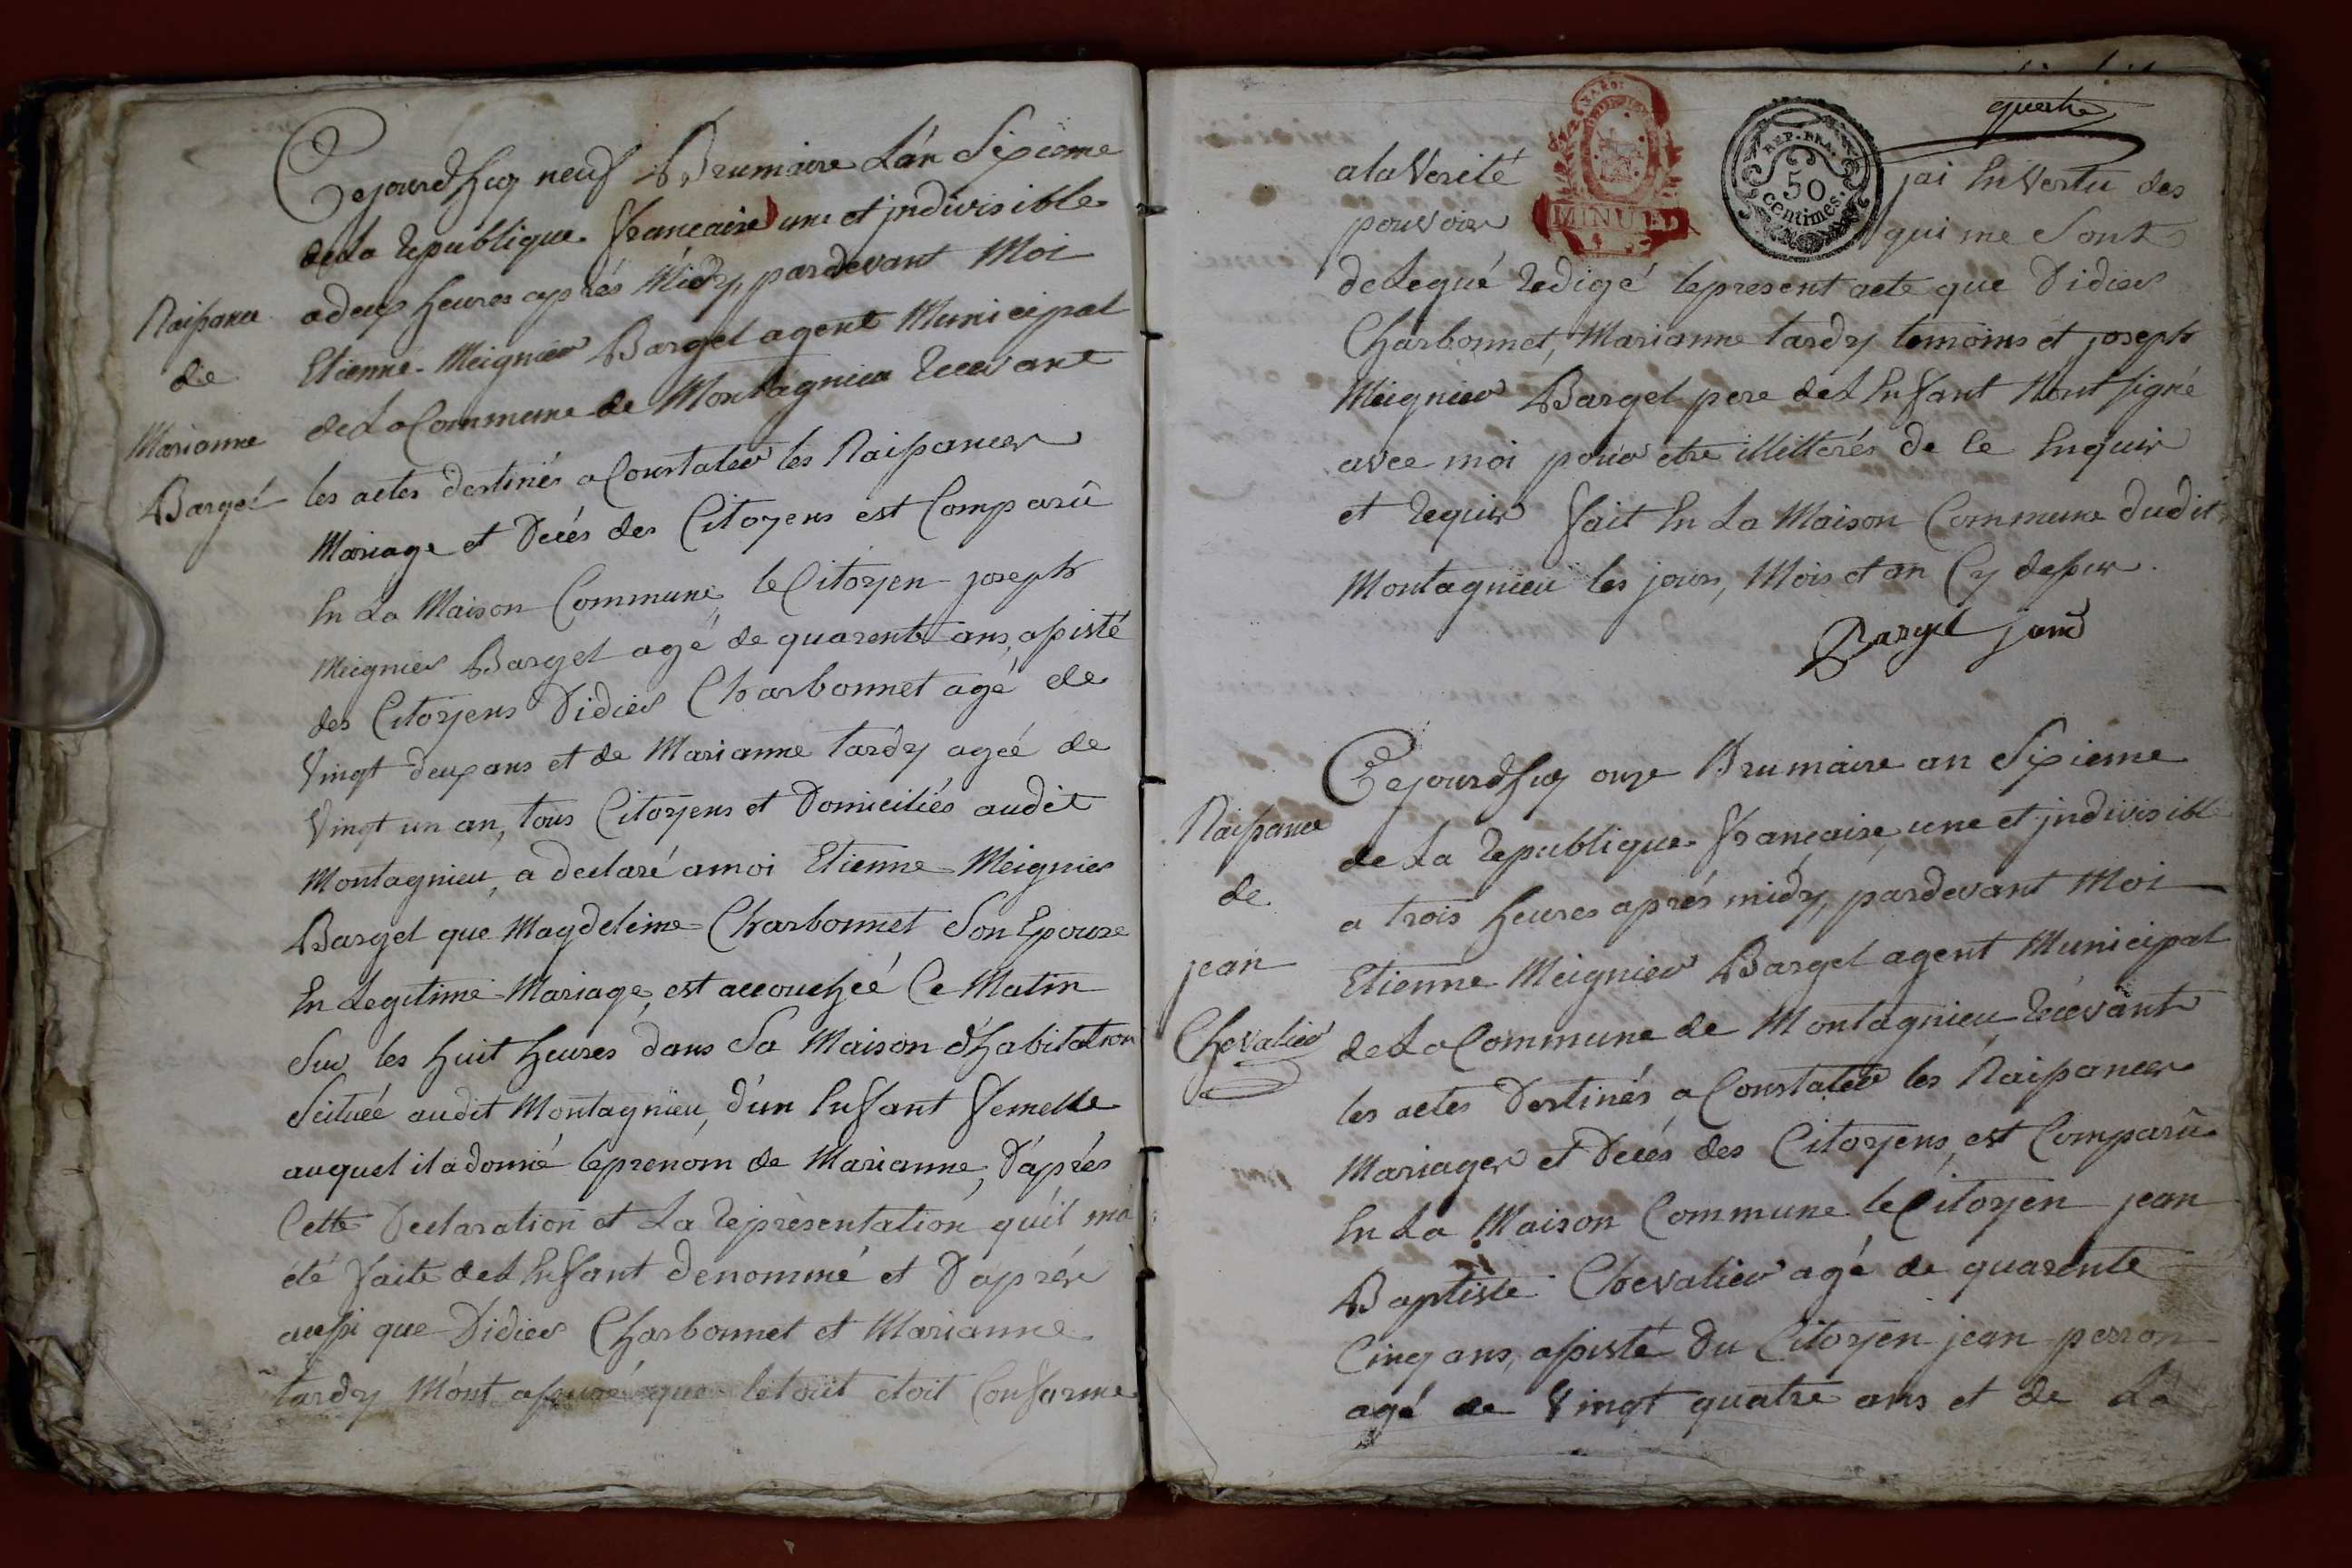 Cejourd'huy neuf Brumaire L'an Sixieme
de La Republique francaise une et jndivisible
a deux heures aprés Midy, pardevant Moi
Etienne Meignier Bargel agent Municipal
de La Commune de Montagnieu Recevant
les actes destinés a Constater les Naissances
Mariage et Décés des Citoyens est Comparû
En La Maison Commune le Citoyen joseph
Meignier Bargel agé de quarente ans, assisté
des Citoyens Didier Charbonnet agé de
Vingt deux ans et de Marianne tardy agée de
Vingt un an, tous Citoyens et Domiciliés audit
Montagnieu, a declaré a moi Etienne Meignier
Bargel que Magdeleine Charbonnet Son Epouze
En Legitime Mariage, est accouchée Ce Matin
Sur les huit heures dans Sa Maison d'habitation
Scituée audit Montagnieu, d'un Enfant femelle
auquel il a donné le prenom de Marianne, D'aprés
Cette Declaration et La Représentation qu'il m'a
été faite de L'Enfant denommé et D'aprés
aussi que Didier Charbonnet et Marianne
tardy M'ont assuré que le tout etoit Conforme
Naissance
de
Marianne
Bargel
quatre
MINUTE
REP. FRA.
50
centimes.
a la Verité j'ai En Vertu des
pouvoirs qui me Sont
delegué Redigé le present acte que Didier
Charbonnet, Marianne tardy temoins et joseph
Meignier Bargel pere de L'Enfant N'ont signé
avec moi pour etre illitterés de Ce Enquis
et Requis fait En La Maison Commune dudit
Montagnieu les jour, Mois et an Cy dessus.
Bargel
Cejourd'huy onze Brumaire an Sixieme
de La Republique francaise, une et jndivisible
a trois heures aprés midy, pardevant Moi
Etienne Meignier Bargel agent Municipal
de La Commune de Montagnieu Recevant
les actes Destinés a Constater les Naissances
Mariages et Décés des Citoyens, est Comparû
En La Maison Commune le Citoyen jean
Baptiste Chevalier agé de quarente
Cinq ans, assisté Du Citoyen jean perron
agé de Vingt quatre ans et de La
Naissance
de
jean
Chevalier